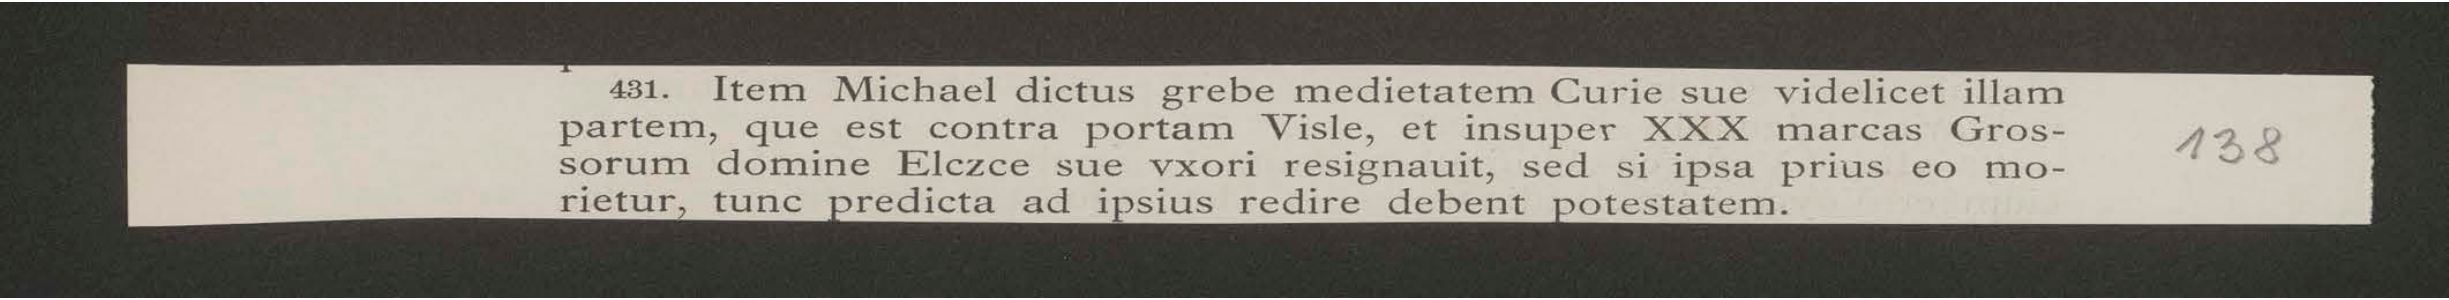 431. Item Michael dictus grebe medietatem Curie sue videlicet illam
partem, que est contra portam Visle, et insuper XXX marcas Gros-
sorum domine Elczce sue vxori resignauit, sed si ipsa prius eo mo-
rietur, tunc predicta ad ipsius redire debent potestatem.
138